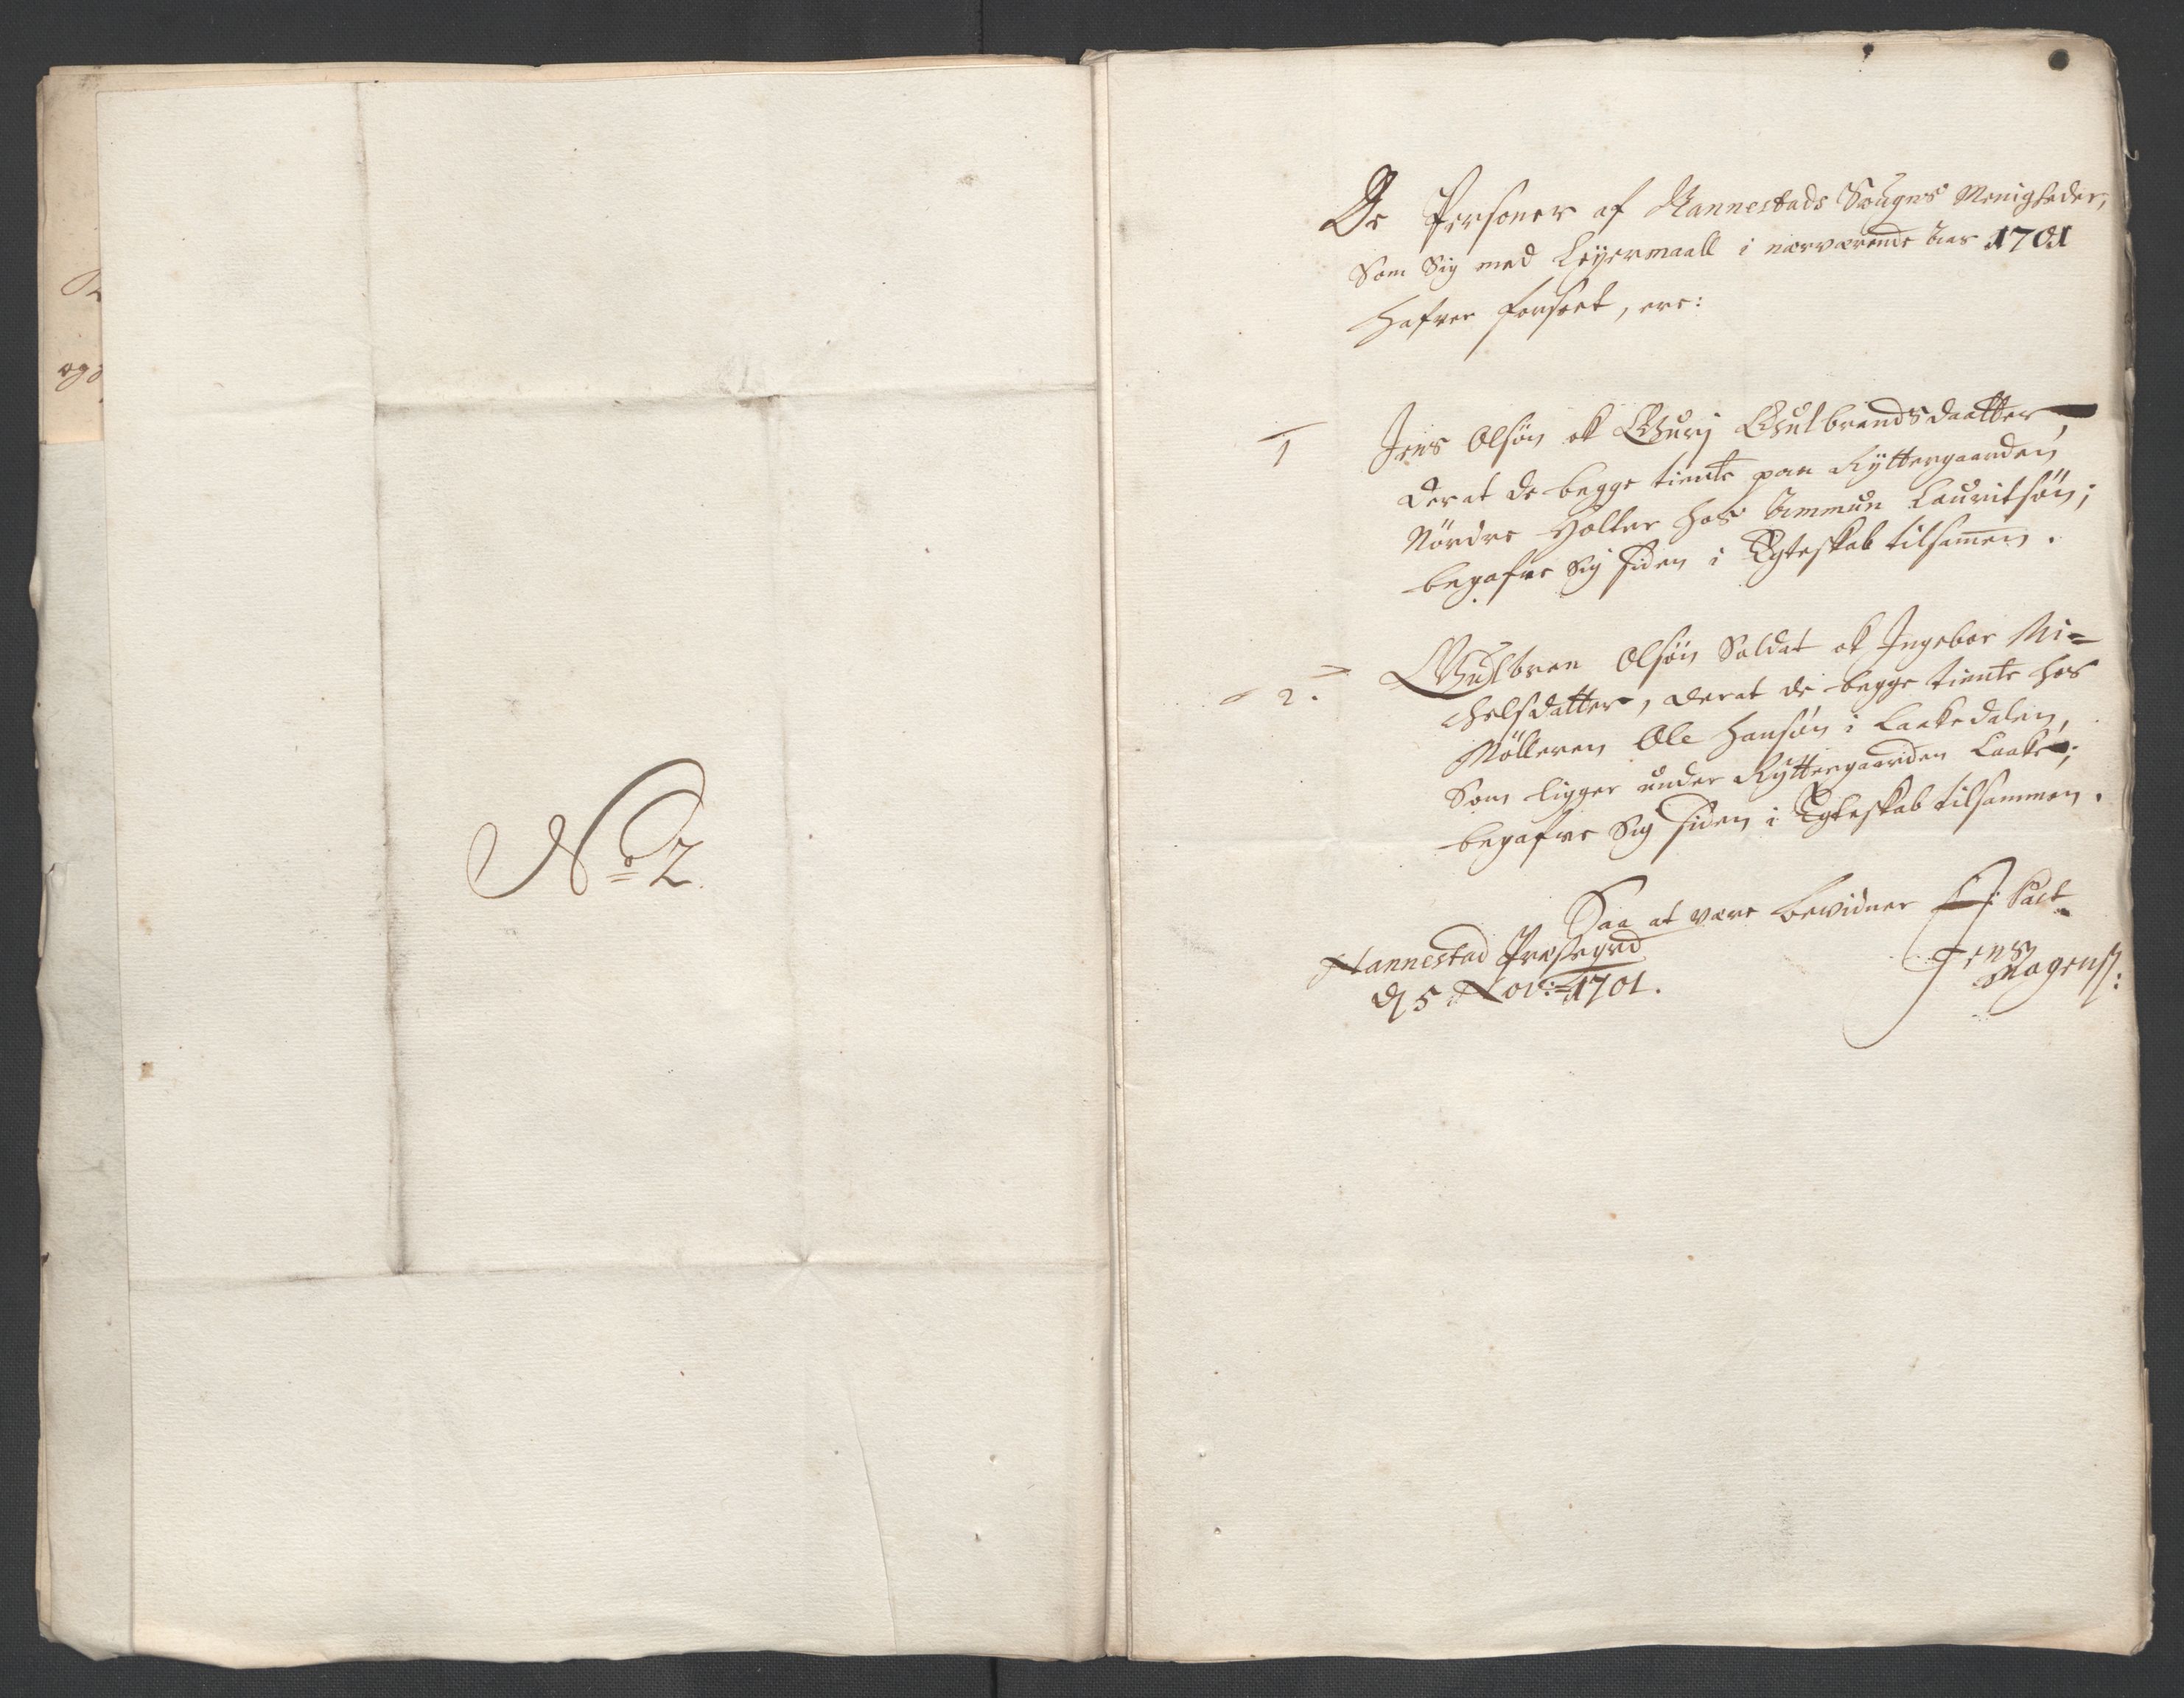 og
No 2.
De Personer af Nannestads Sougns Menigheder,
Som Sig med Leyermaall i nærværende Aar 1701
hafver forseet, ere:
1 Jens Olsøn ok Guri Gulbrandsdaatter,
der at de begge tiente paa Rÿttergaarden
Nördre Holter hos Ammun Lauritsøn;
begafve Sig siden i Egteskab tilsamen.
2. Gulbran Olsøn Soldat ok Ingebor Mi=
chelsdatter, der at de begge tiente hos
Mölleren Ole Hansøn i Laakedalen,
Som ligger under Rÿttergaarden Laake;
begafve Sig siden i Egteskab tilsammen.
Saa at være bevidner
Nannestad Præstegrd
d 5 Nov: 1701.
Jens
Mogenss: